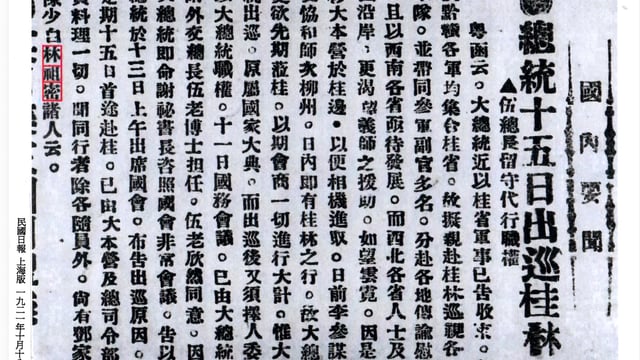 國內要聞
◉總統十五日出巡桂林
▲伍總長留守代行職權
粵函云。大總統近以桂省軍事已告收束。
黔贛各軍均集合桂省。故擬親赴桂林巡視各
隊。並帶同參軍副官多名。分赴各地傳諭慰
且以西南各省亟待發展。而西北各省人士及
沿岸。更渴望義師之援助。如望雲霓。因是
大本營於桂邊。以便相機進取。日前李參謀
協和師次柳州。日內即有桂林之行。故大總
更欲先期蒞桂。以期會商一切進行大計。惟大
統出巡。原屬國家大典。而出巡後又須擇人委
以大總統職權。十一日國務會議。已由大總統
外交總長伍老博士担任。伍老欣然同意。因
大總統即命謝祕書長咨照國會非常會議。告以
統於十三日上午出席國會。布告出巡原因。
定期十五日首途赴桂。已由大本營及總司令部
料理一切。聞同行者除各隨員外。尚有鄧家
陳少白林祖密諸人云。
民國日報 上海版 一九二一年十月十